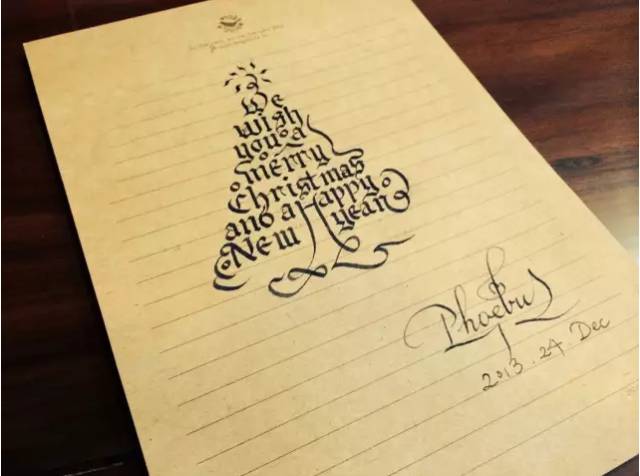 We
wish
you a
merry
Christmas
and a Happy
New year
Phoebus
2013. 24. Dec